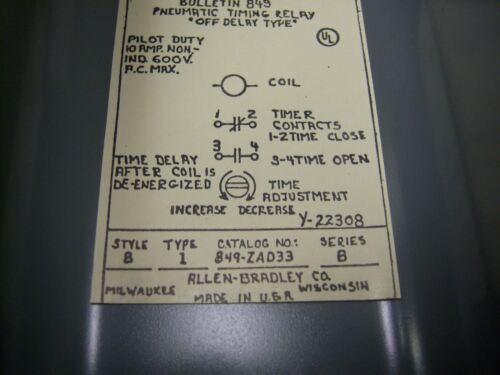 BULLETIN 849
PNEUMATIC TIMING RELAY
"OFF DELAY TYPE"
PILOT DUTY
10 AMP. NON-
IND. 600V.
A.C. MAX.
UL
COIL
1 2 TIMER
CONTACTS
1-2 TIME CLOSE
3 4 3-4 TIME OPEN
TIME DELAY
AFTER COIL IS
DE-ENERGIZED
TIME
ADJUSTMENT
INCREASE DECREASE
Y-22308
STYLE TYPE CATALOG NO.: SERIES
B 1 849-ZAD33 B
ALLEN-BRADLEY CO.
MILWAUKEE WISCONSIN
MADE IN U.S.A